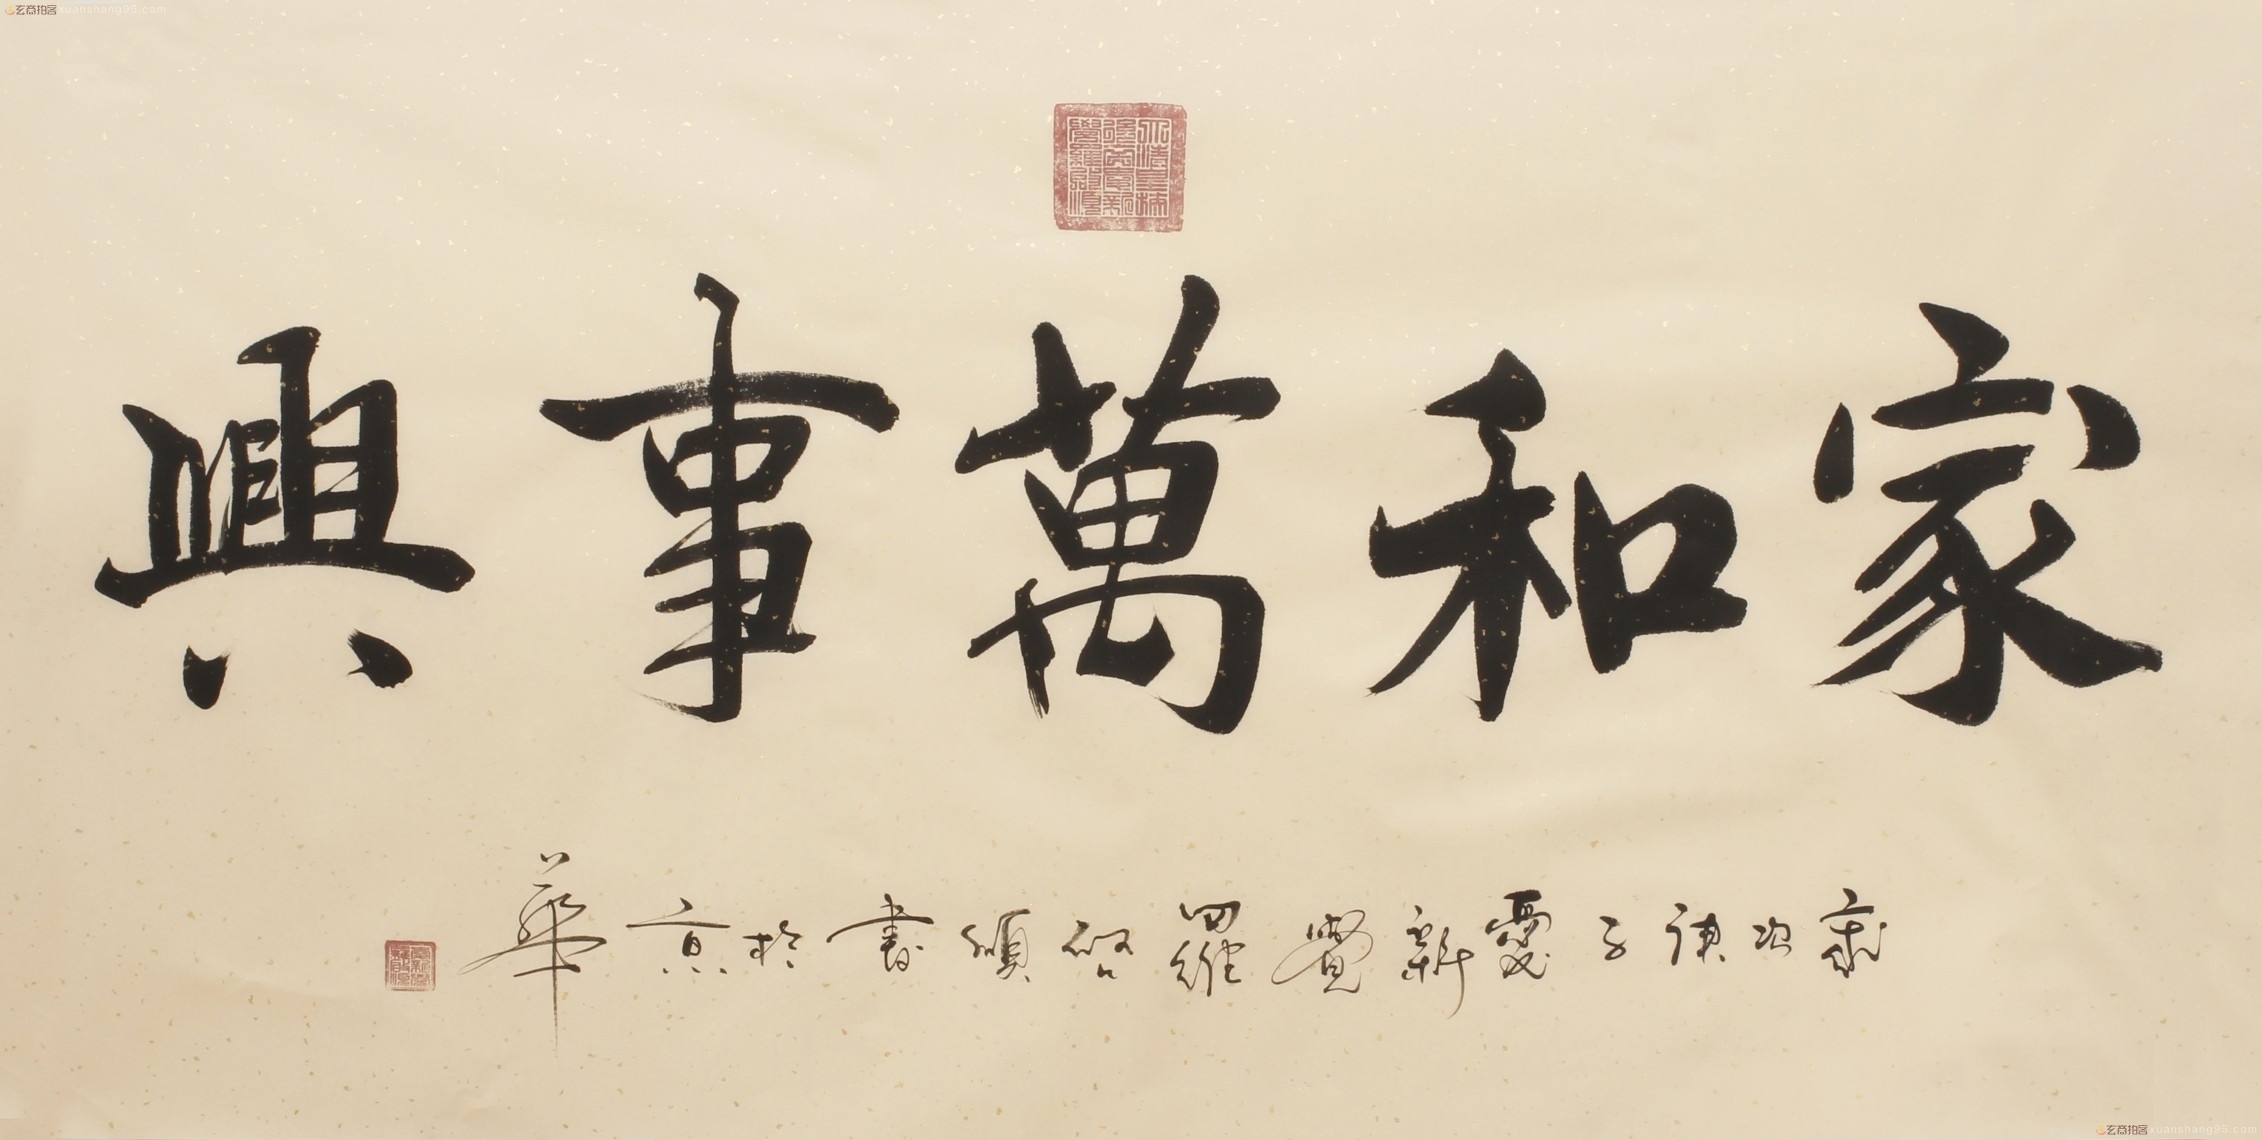 玄商拍客xuanshang95.com
家和萬事興
歲次庚子愛新覺羅啓頎書於京華
玄商拍客xuanshang95.com